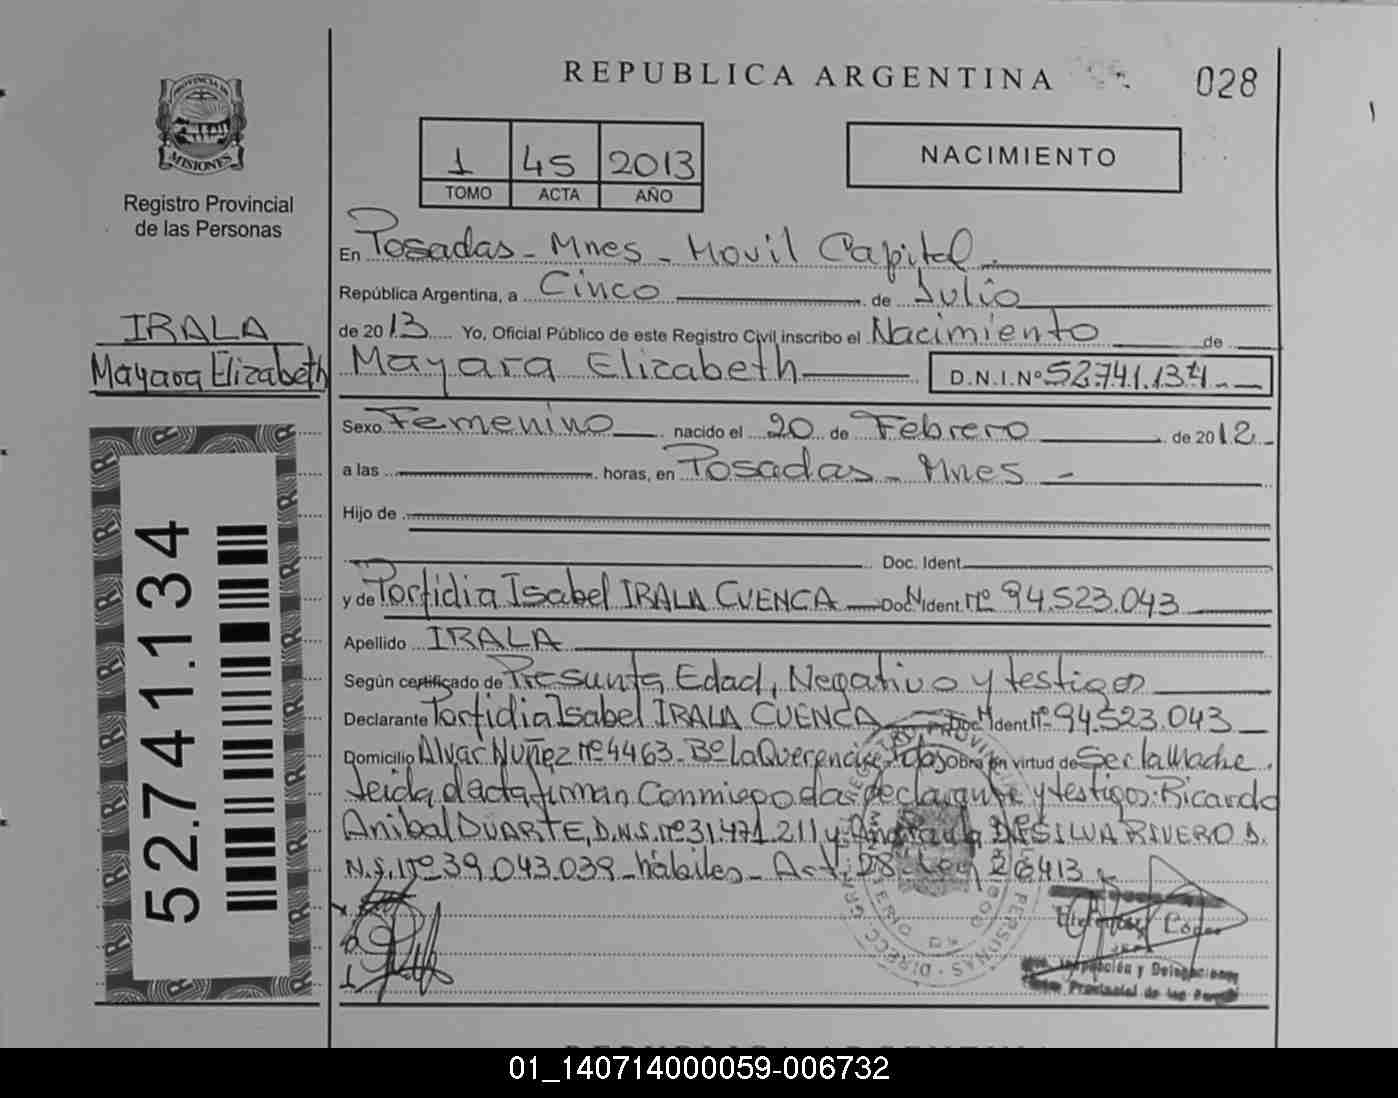 REPUBLICA ARGENTINA
028
PROVINCIA DE
MISIONES
Registro Provincial
de las Personas
1 45 2013
TOMO ACTA AÑO
NACIMIENTO
En Posadas - Mnes - Movil Capital
República Argentina, a Cinco de Julio
de 2013 Yo, Oficial Público de este Registro Civil inscribo el Nacimiento de
IRALA
Mayara Elizabeth
Mayara Elizabeth D.N.I.Nº 52.741.134
Sexo Femenino nacido el 20 de Febrero de 2012
a las horas, en Posadas - Mnes -
Hijo de
Doc. Ident.
y de Porfidia Isabel IRALA CUENCA Doc. Ident. Nº 94.523.043
Apellido IRALA
Según certificado de Presunta Edad, Negativo y testigos
Declarante Porfidia Isabel IRALA CUENCA Doc. Ident. Nº 94.523.043
Domicilio Alvar Nuñez Nº 4463 - Bº La Querencia - Pdas Obra en virtud de Ser la Madre.
Leida el acta firman Conmigo la declarante y testigos: Ricardo
Anibal DUARTE, D.N.I. Nº 31.471.211 y DA SILVA RIVERO D.
N.I. Nº 39.043.039 - hábiles - Art. 28 Ley 26413
52.741.134
Inspección y Delegaciones
Provincial de las
01_140714000059-006732